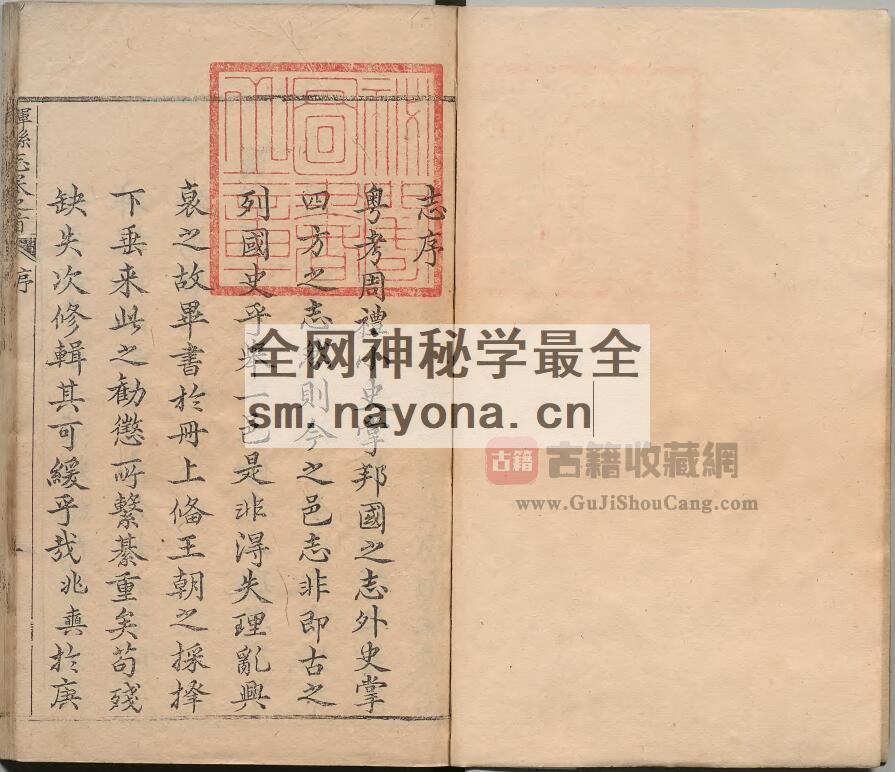 志序
粤考周禮小史掌邦國之志外史掌
四方之志然則今之邑志非即古之
列國史乎舉一邑是非得失理亂興
衰之故畢書於冊上俻王朝之採擇
下垂来此之勸懲所繫綦重矣苟殘
缺失次修輯其可緩乎哉兆真於庚
縣志卷之首
序
全网神秘学最全
sm.nayona.cn
古籍
古籍收藏網
www.GuJiShouCang.com